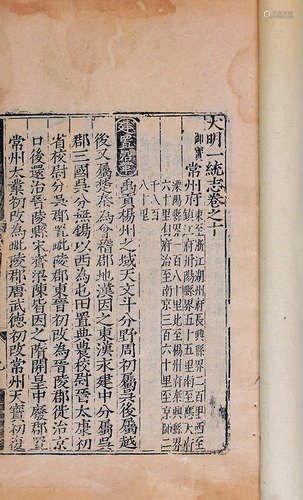 大明一統志卷之十
常州府 東至浙江湖州府長興縣界二百里西至
鎮江府丹陽縣界五十五里南至應天府
溧陽縣界一百八十里北至揚州府泰興縣界
六十里自府治至南京三百六十里至京師二
千八百
八十里
建置沿革 禹貢楊州之域天文斗分野周初屬吳後屬越
後又屬楚秦為會稽郡地漢因之東漢永建中分屬吳
郡三國吳分無錫以西為屯田置典農校尉晉太康初
省校尉分吳郡置毗陵郡東晉初改為晉陵郡徙治京
口後還治晉陵縣宋齊梁陳皆因之隋開皇中廢郡置
常州大業初改為毗陵郡唐武德初改常州天寶初復